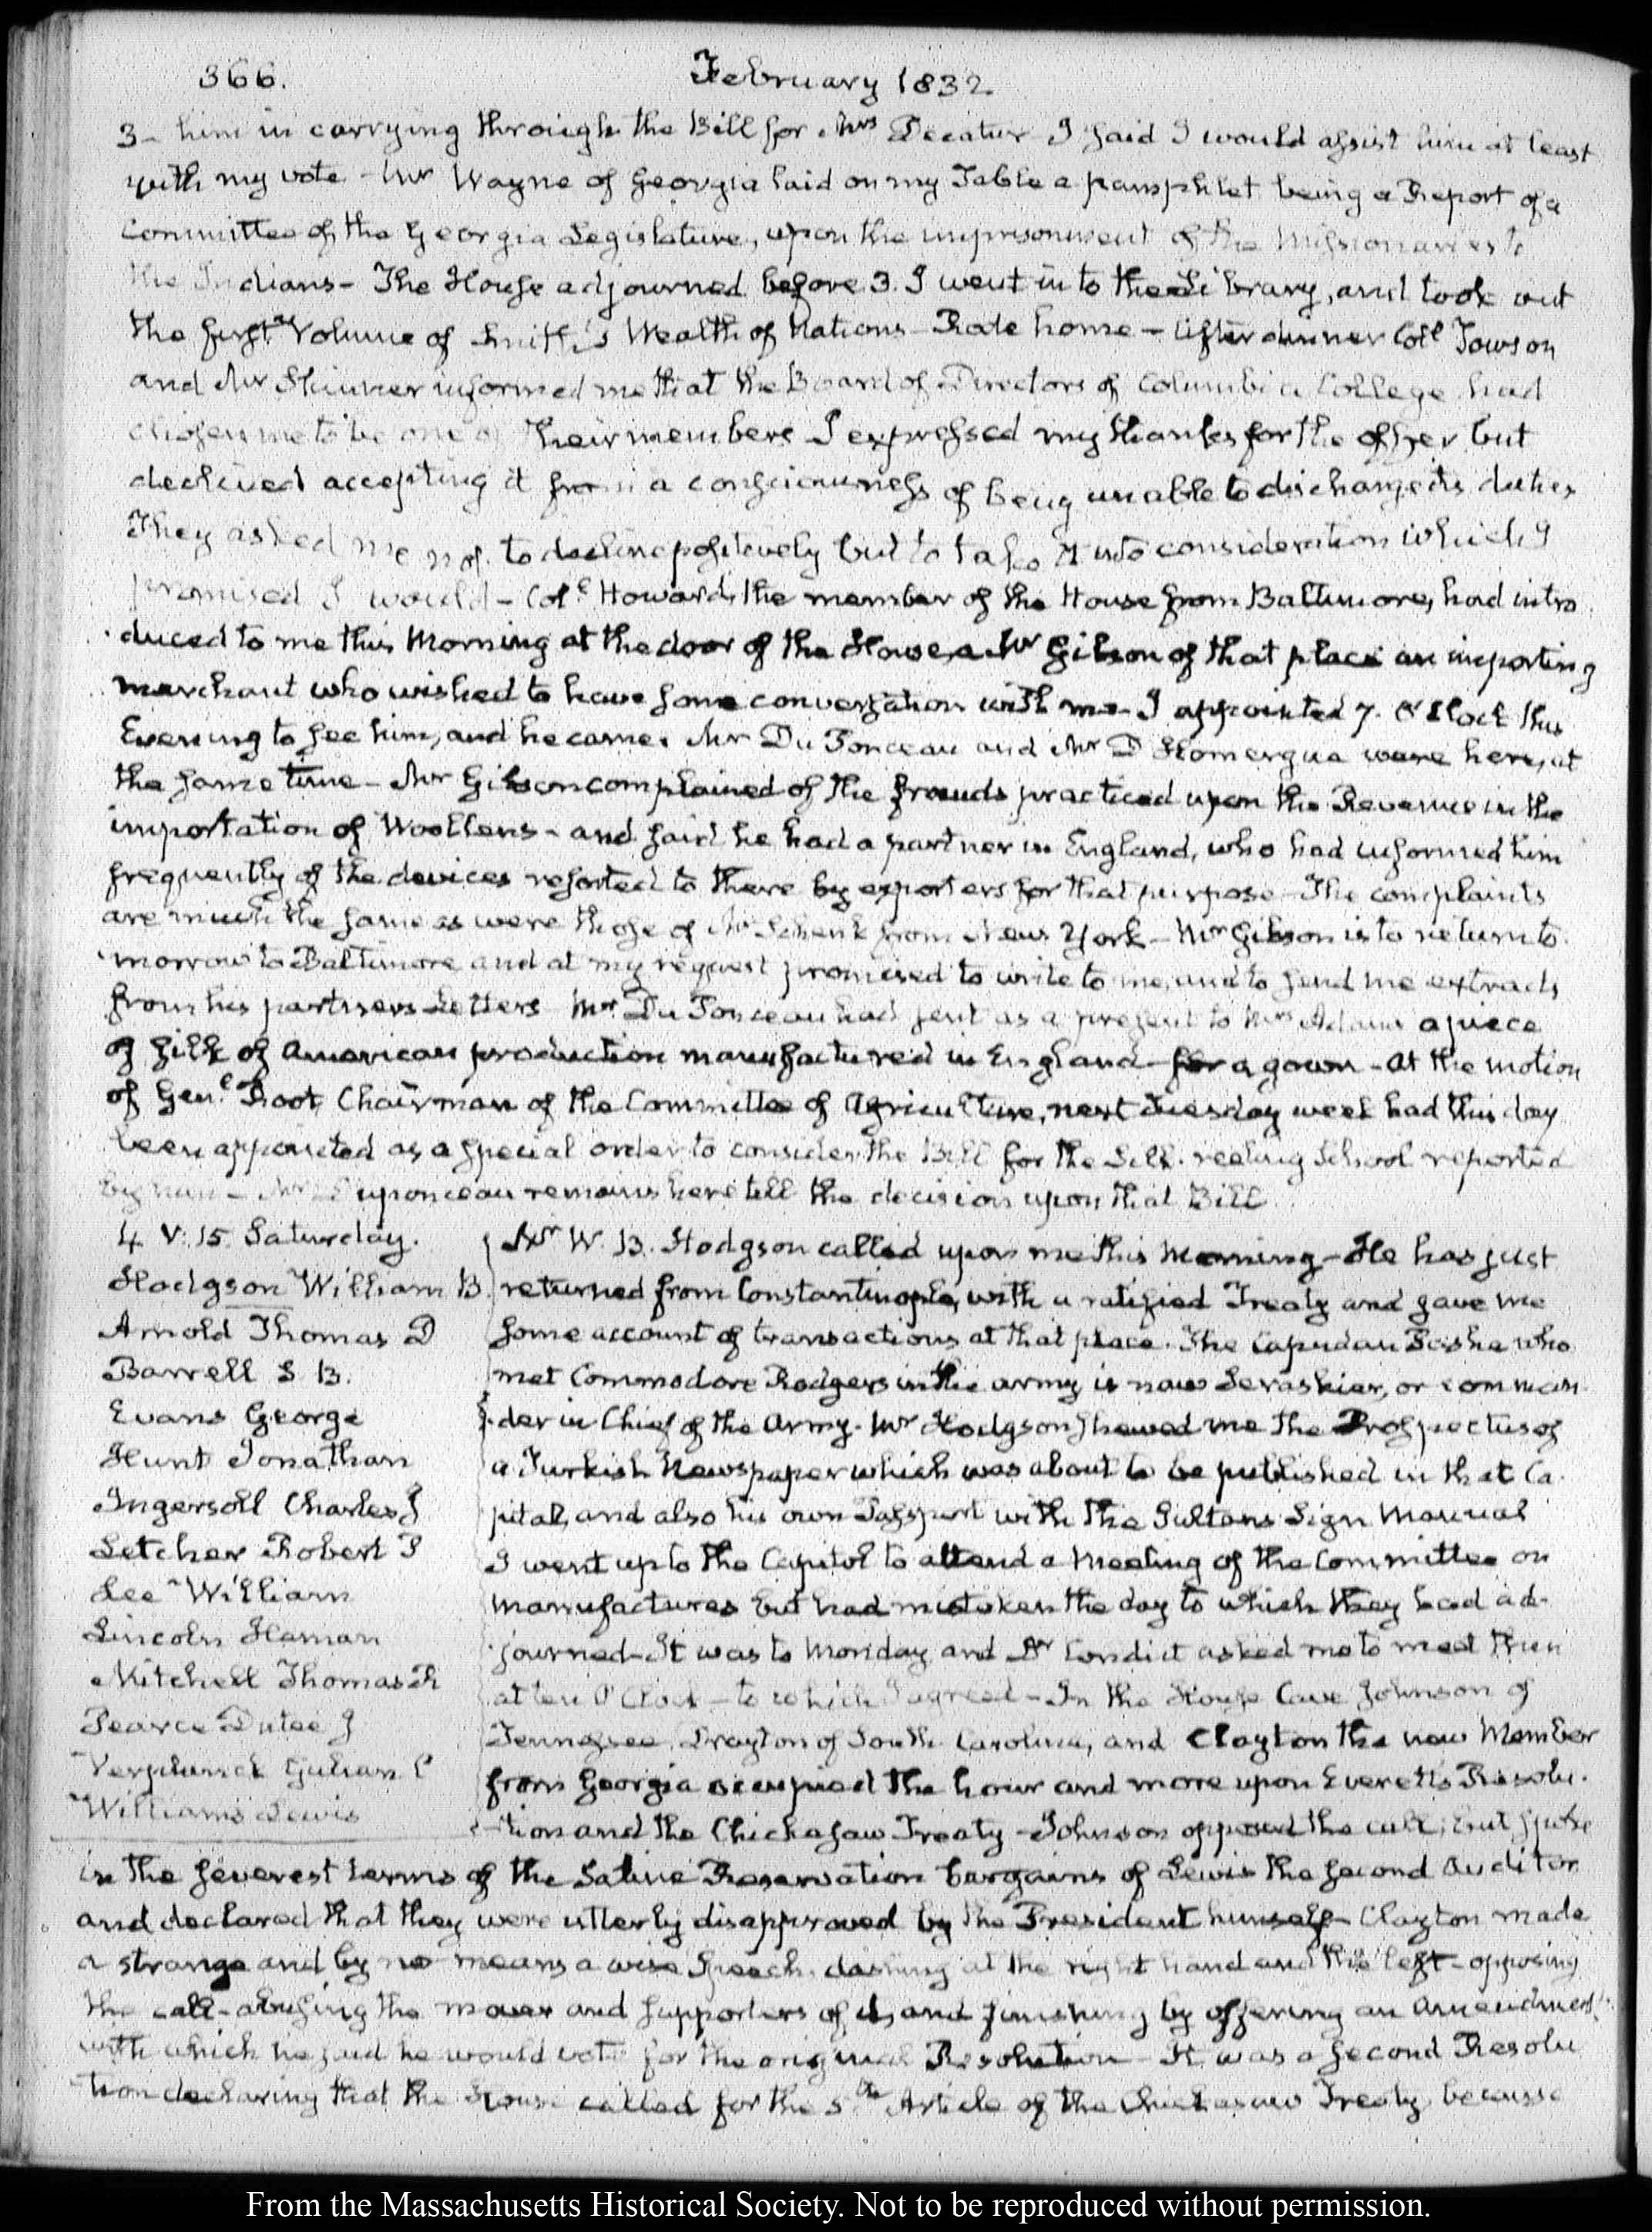 366.
February 1832
3 - him in carrying through the Bill for Mrs Decatur - I said I would assist him at least
with my vote - Mr Wayne of Georgia laid on my Table a pamphlet being a Report of a
Committee of the Georgia Legislature, upon the imprisonment of the Missionaries to
the Indians - The House adjourned before 3. I went in to the Library, and took out
the first Volume of Smith's Wealth of Nations - Rode home - After dinner Coll Towson
and Mr Skinner informed me that the Board of Directors of Columbia College had
chosen me to be one of their members I expressed my thanks for the offer but
declined accepting it from a consciousness of being unable to discharge its duties
They asked me not to decline positively but to take it into consideration which I
promised I would - Coll Howard, the member of the House from Baltimore, had intro
duced to me this Morning at the door of the House, a Mr Gibson of that place an importing
merchant who wished to have some conversation with me - I appointed 7. O'Clock this
Evening to see him, and he came. Mr Du Ponceau and Mr D Homergue were here, at
the same time - Mr Gibson complained of the frauds practiced upon the Revenue in the
importation of Woollens - and said he had a partner in England, who had informed him
frequently of the devices resorted to there by exporters for that purpose - The complaints
are much the same as were those of Mr Schenk from New York - Mr Gibson is to return to
morrow to Baltimore and at my request promised to write to me, and to send me extracts
from his partners Letters Mr Du Ponceau had sent as a present to Mrs Adams a piece
of silk of American production manufactured in England - for a gown - At the motion
of Genl Root, Chairman of the Committee of Agriculture, next Tuesday week had this day
been appointed as a special order to consider the Bill for the Silk-reeling School reported
by him - Mr Duponceau remains here till the decision upon that Bill
4 V: 15. Saturday.
Hodgson William B.
Arnold Thomas D
Barrell S B.
Evans George
Hunt Jonathan
Ingersoll Charles J
Letcher Robert P
Lee William
Lincoln Haman
Mitchell Thomas R
Pearce Dutee J
Verplanck Gulian C
Williams Lewis
Mr W. B. Hodgson called upon me this Morning - He has just
returned from Constantinople, with a ratified Treaty and gave me
some account of transactions at that place. The Capudan Pasha who
met Commodore Rodgers in the army is now Seraskier, or comman
der in Chief of the Army. Mr Hodgson shewed me the Prospectus of
a Turkish Newspaper which was about to be published in that Ca-
pital, and also his own Passport with the Sultans Sign Manual
I went up to the Capitol to attend a Meeting of the Committee on
Manufactures but had mistaken the day to which they had ad-
journed - It was to Monday and Dr Condict asked me to meet them
at ten O'Clock - to which I agreed - In the House Cave Johnson of
Tennessee, Drayton of South Carolina, and Clayton the new Member
from Georgia occupied the hour and more upon Everett's Resolu-
tion and the Chickasaw Treaty - Johnson opposed the call, but spoke
in the severest terms of the Saline Reservation bargains of Lewis the second Auditor
and declared that they were utterly disapproved by the President himself - Clayton made
a strange and by no means a wise Speech, dashing at the right hand and the left - opposing
the call - abusing the mover and supporters of it, and finishing by offering an Amendment
with which he said he would vote for the original Resolution - It was a second Resolu
tion declaring that the House called for the 5th Article of the Chickasaw Treaty, because
From the Massachusetts Historical Society. Not to be reproduced without permission.